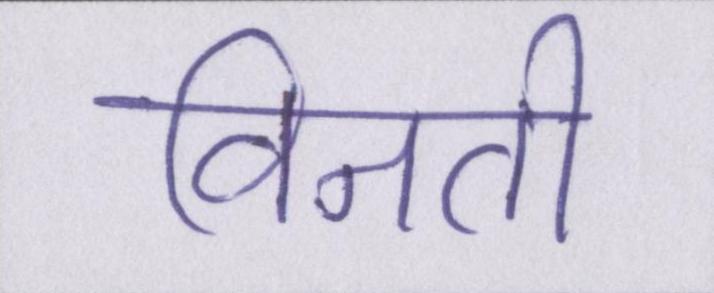 विनती